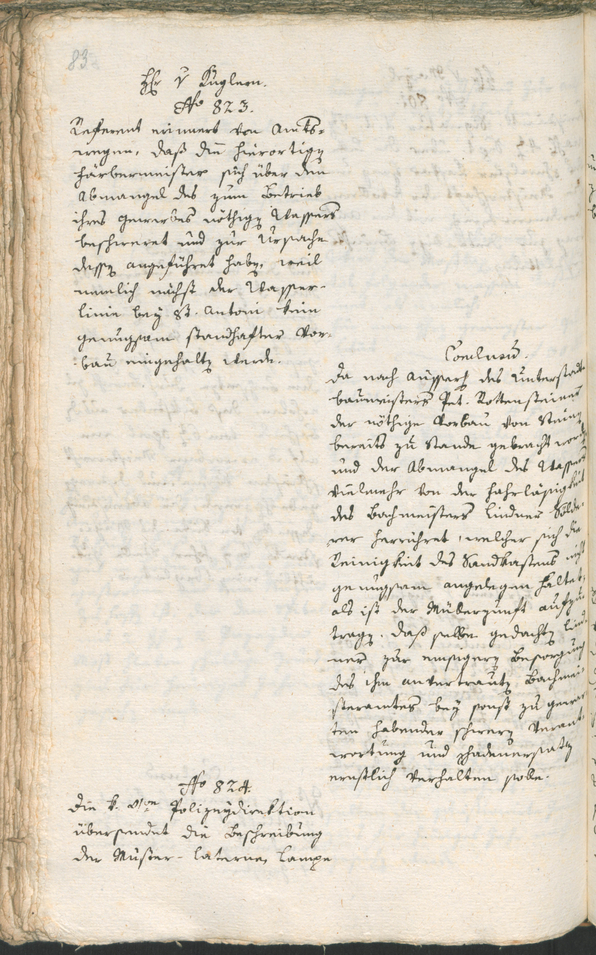 83
H v Kugler.
No 823.
Referent erinnert von Amts-
wegen, daß die hierortigen
Färbermeister sich über den
Abmangel des zum Betrieb
ihres Gewerbes nöthigen Wassers
beschweret und zur Ursache
dessen angeführet haben, weil
nemlich nächst der Wasser-
linie bey St. Antoni kein
genugsam standhafter Vor-
bau eingehalten werde.
Conclusum.
Da nach Aussprach des Unterstadt-
baumeisters Pet. Rottensteiner
der nöthige Vorbau von Steinen
bereits zu Stande gebracht worden
und der Abmangel des Wassers
vielmehr von der Fahrläßigkeit
des Bachmeisters Lindner
her herrühret, welcher sich die
Reinigkeit des Sandkastens nicht
genugsam angelegen haltet,
als ist der aufzu-
tragen, daß selbe gedachten Lind-
ner zur emsigern Besorgung
des ihm anvertrauten Bachmei-
steramtes bey sonst zu gewar-
ten habender schwerer Verant-
wortung und schadenersatz
ernstlich verhalten solle.
No 824.
Die k. Polizeydirektion
übersendet die Beschreibung
der Muster-Laternen Lampe